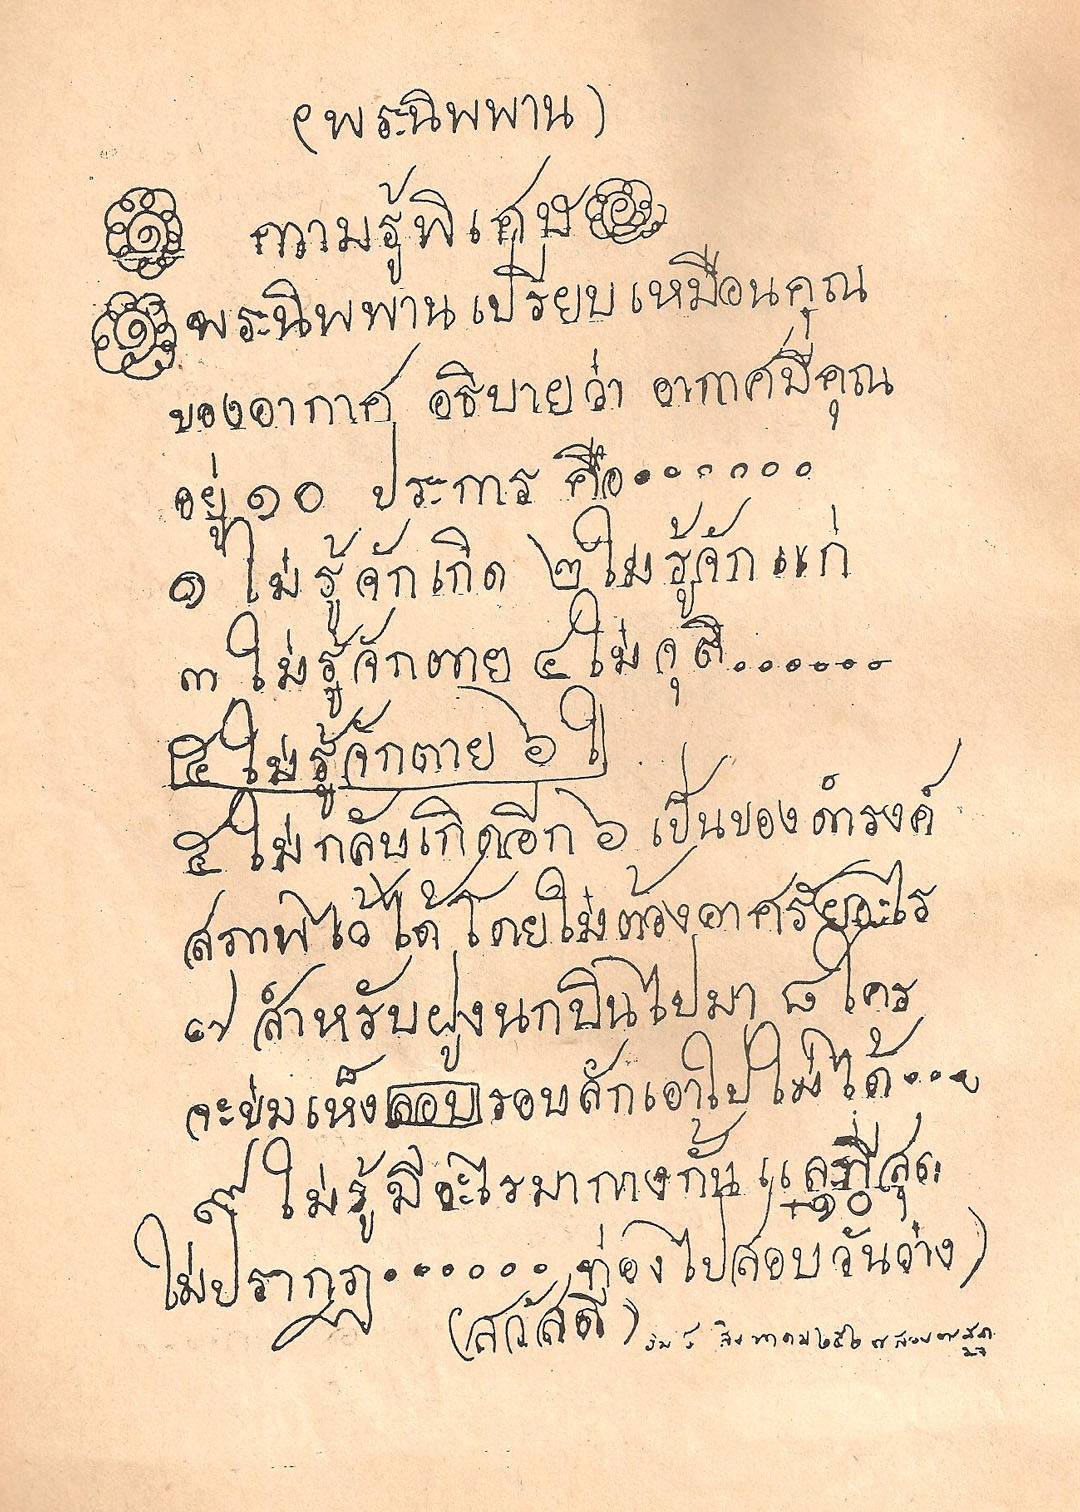 (พระนิพพาน)
๑ ความรู้พิเศษ ๑
๑ พระนิพพานเปรียบเหมือนคุณ
ของอากาศ อธิบายว่า อากาศมีคุณ
อยู่ ๑๐ ประการ คือ••••••
๑ ไม่รู้จักเกิด ๒ ไม่รู้จักแก่
๓ ไม่รู้จักตาย ๔ ไม่จุติ......
๕ ไม่รู้จักตาย ๖ ใ
๕ ไม่กลับเกิดอีก ๖ เป็นของดำรงค์
สภาพไว้ได้โดยไม่ต้องอาศรัยอะไร
๗ สำหรับฝูงนกบินไปมา ๘ ใคร
จะข่มเห็งลอบรอบลักเอาไปไม่ได้•••
๙ ไม่รู้มีอะไรมากางกั้น ๑๐ แลที่สุด
ไม่ปรากฏ•••••• ท่องไปสอบวันว่าง)
(สวัสดี) สิงหาคม